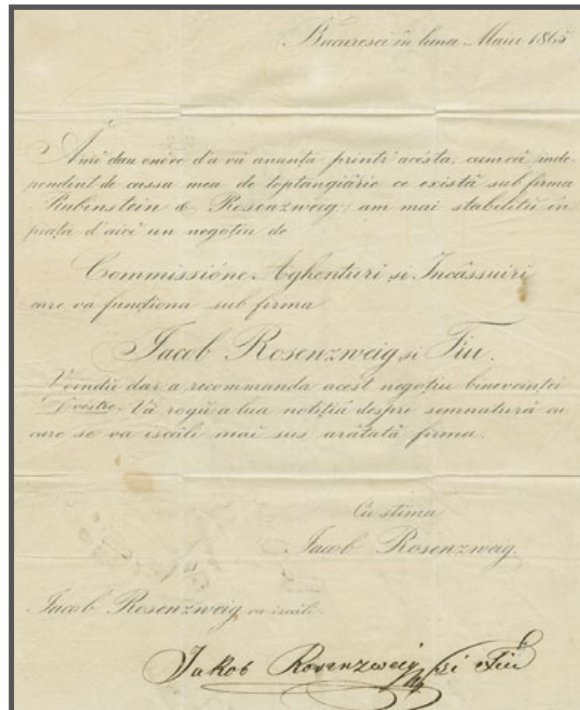 Bucuresci în luna Maiu 1865
Amĕ dau onóre d'a vă anunța printr'acésta, cumcă inde
pendent de cassa mea de toptangiărie ce există sub firma
Rubinstein & Rosenzweig, am mai stabilitŭ în
piața d'aicĭ un negoțiu de
Commissióne, Aghenturi și Incăssuiri
care va funcționa sub firma
Jacob Rosenzweig și Fiu.
Voindŭ dar a recommanda acest negoțiu bineveinței
Dvóstre, Vă rogŭ a lua notiția despre semnatură cu
care se va iscăli maĭ sus arătată firma.
Cu stima
Jacob Rosenzweig
Jacob Rosenzweig va iscăli.
Jakob Rosenzweig si Fiu